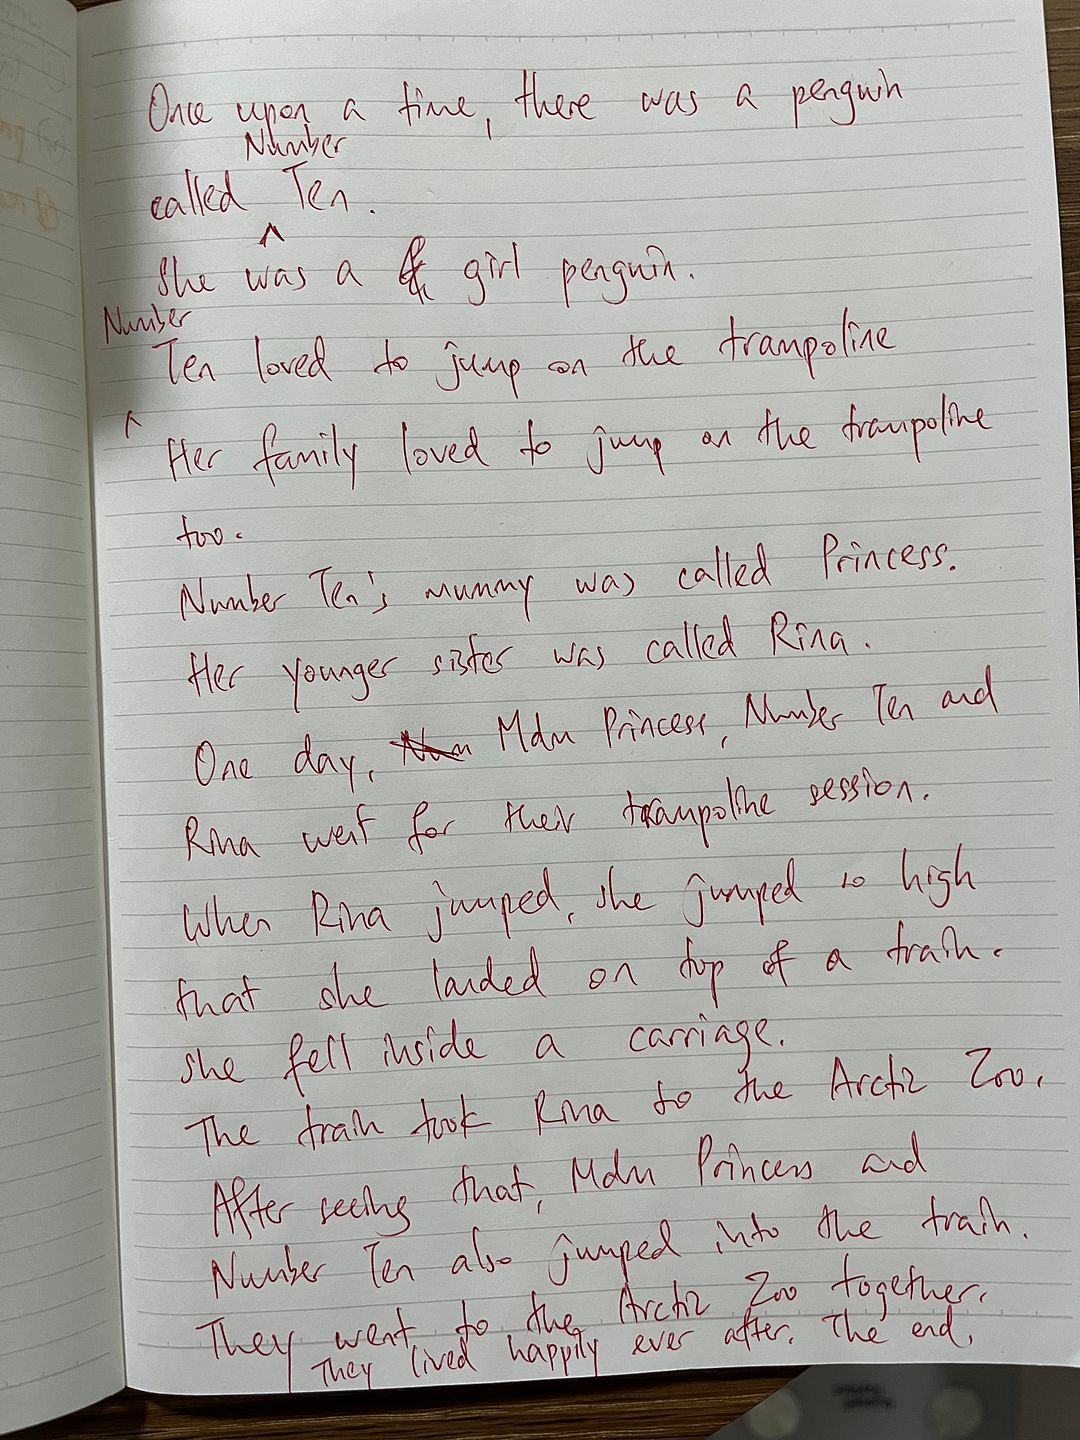 Once upon a time, there was a penguin
Number
called Ten.
^
She was a girl penguin.
Number
Ten loved to jump on the trampoline
^
Her family loved to jump on the trampoline
too.
Number Ten's mummy was called Princess.
Her younger sister was called Rina.
One day, Mdm Princess, Number Ten and
Rina went for their trampoline session.
When Rina jumped, she jumped so high
that she landed on top of a train.
She fell inside a carriage.
The train took Rina to the Arctic Zoo.
After seeing that, Mdm Princess and
Number Ten also jumped into the train.
They went to the Arctic Zoo together.
They lived happily ever after. The end.